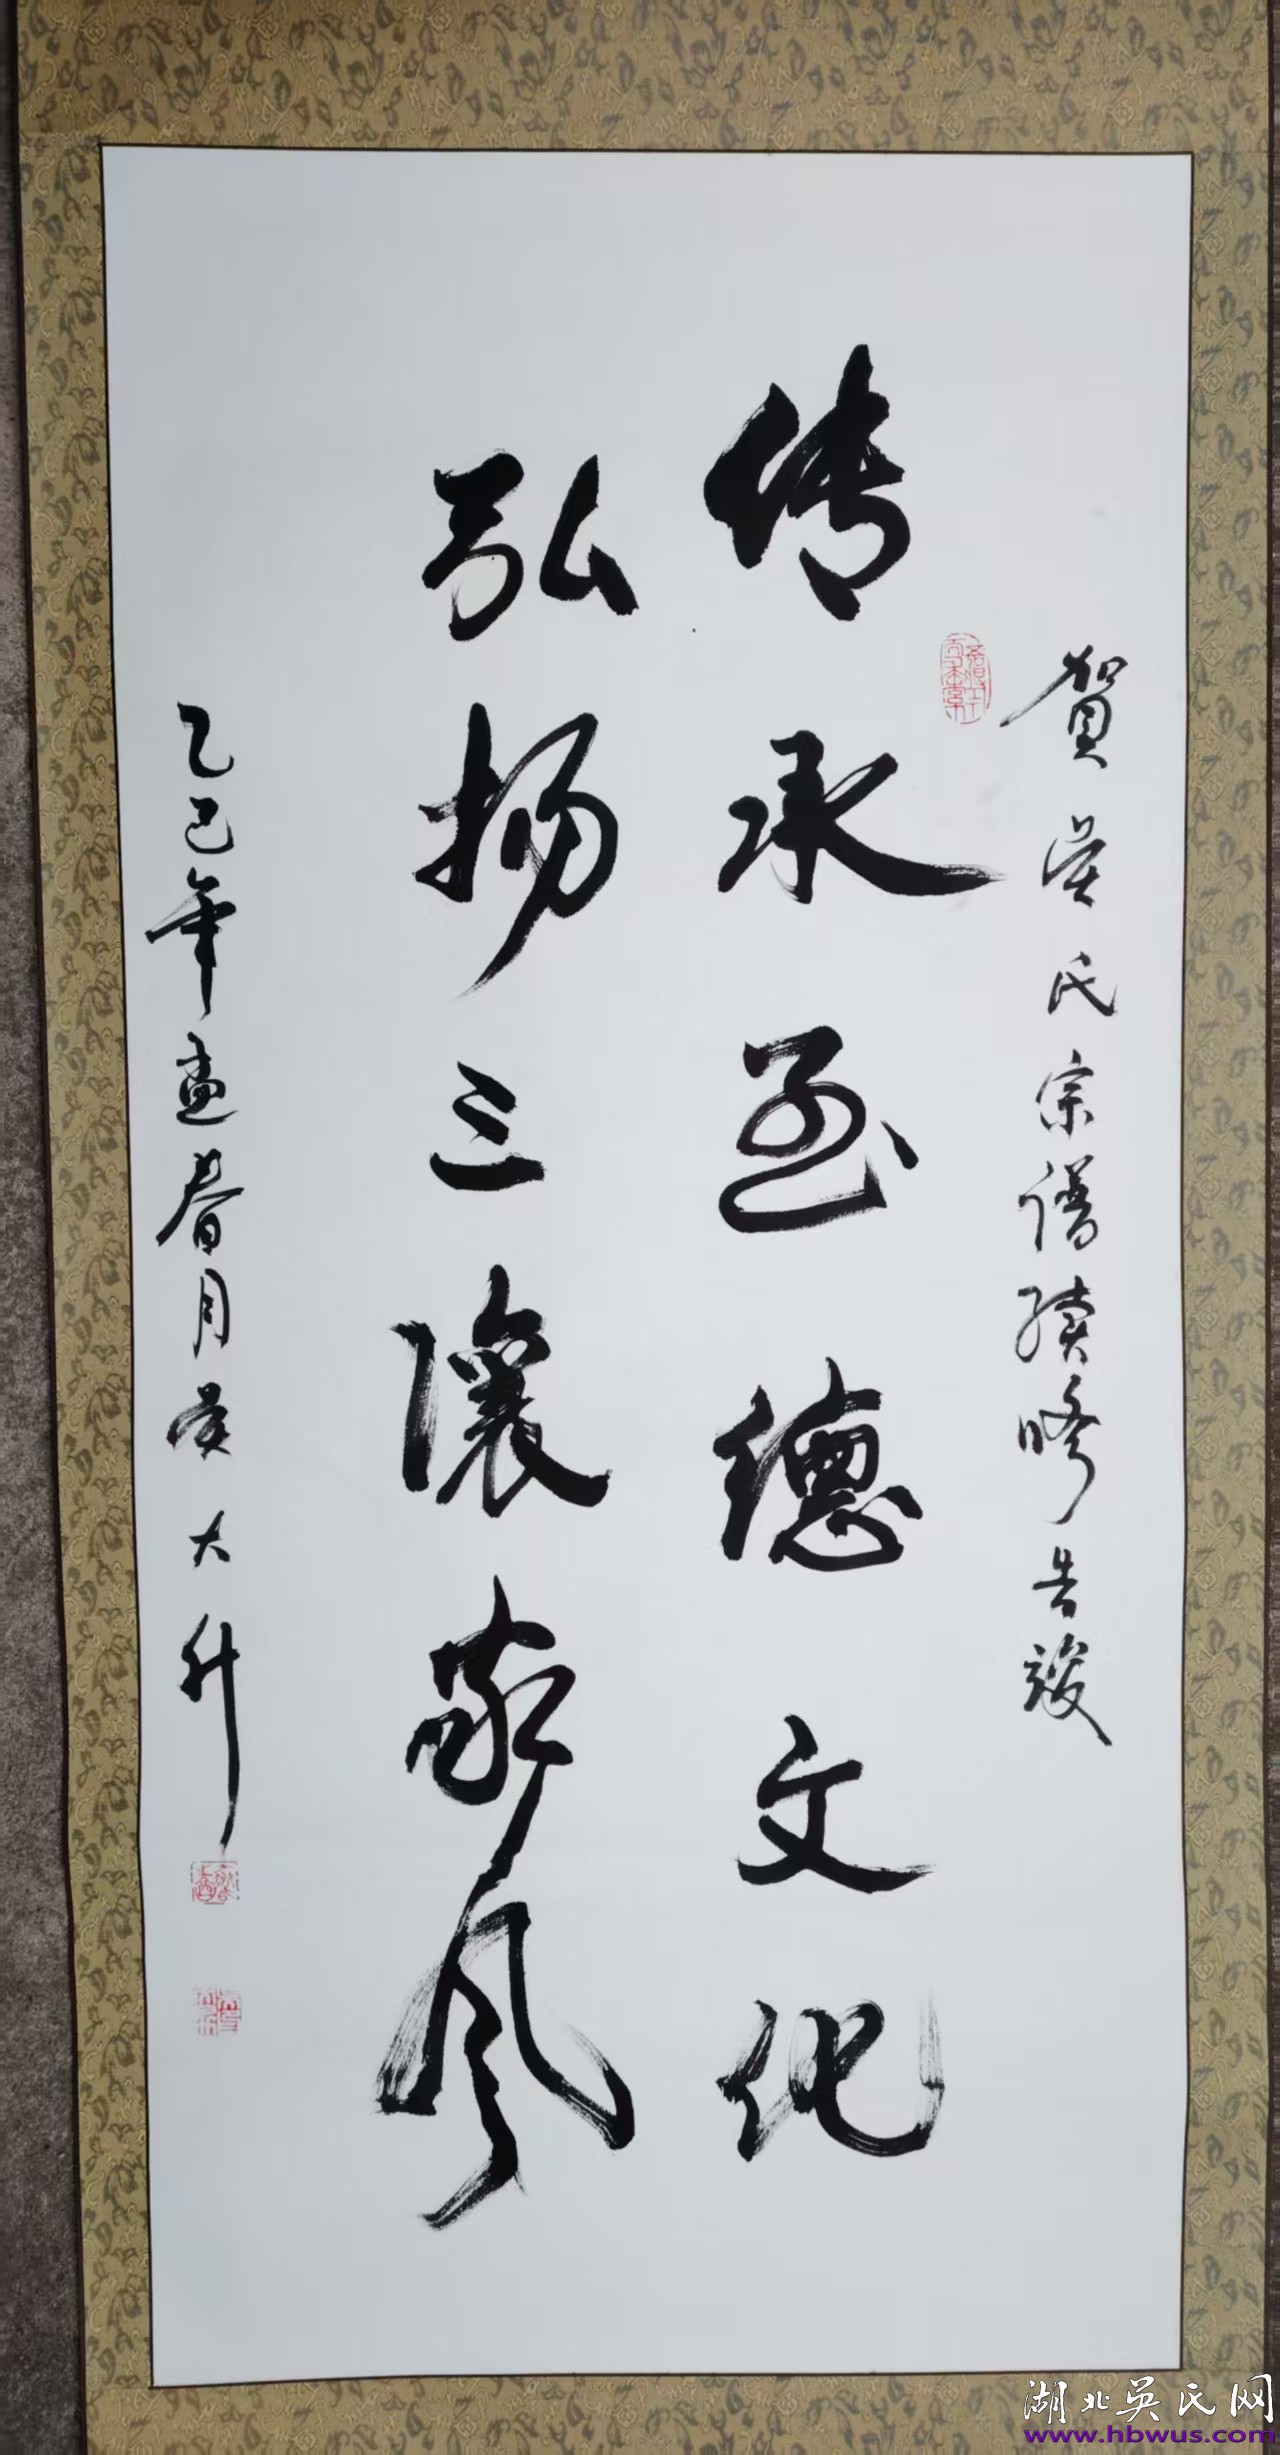 贺吴氏宗谱续修告竣
传承至德文化
弘扬三让家风
乙巳年孟春月吴大升
湖北吴氏网
www.hbwus.com